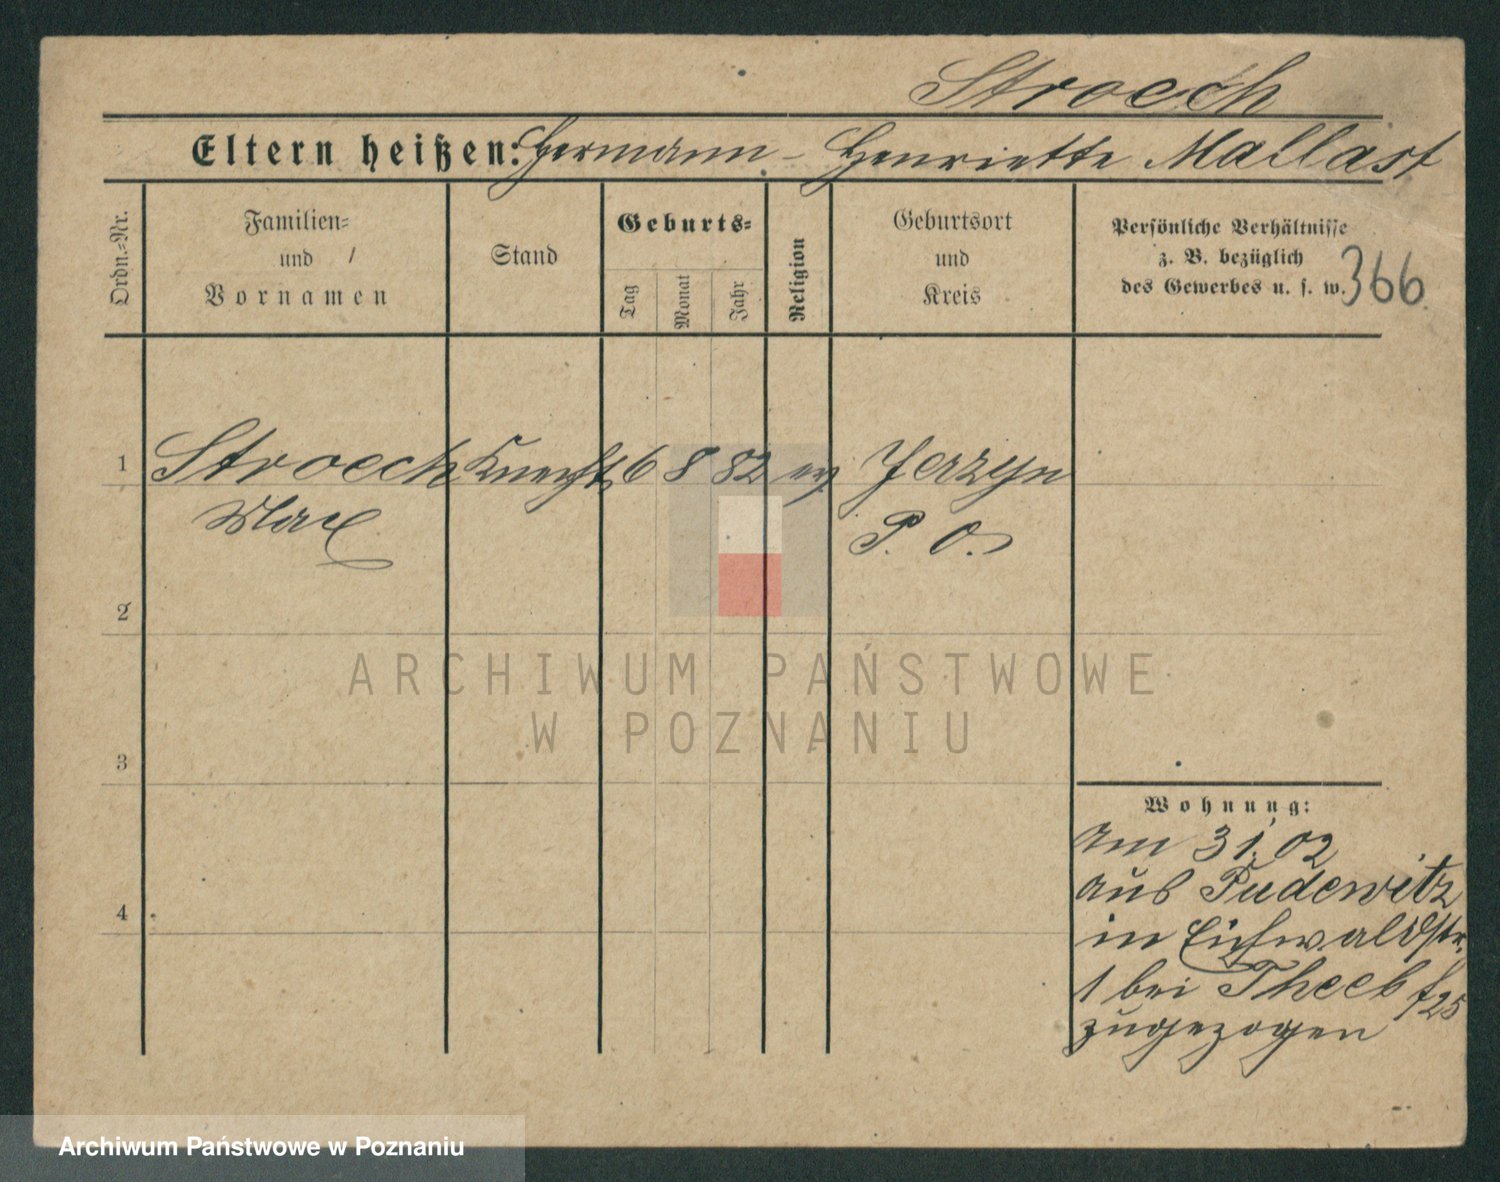 Stroech
Eltern heißen: Hermann - Henriette Mallast
Ordn.=Nr.
Familien=
und
Vornamen
Stand
Geburts=
Tag
Monat
Jahr
Religion
Geburtsort
und
Kreis
Persönliche Verhältnisse
z. B. bezüglich
des Gewerbes u. s. w.
366
1 Stroech Knecht 6 8 82 ev Jerzyn
Max P. O.
2
3
4
Wohnung:
am 3 1. 02
aus Pudewitz
in Eichwaldstr.
1 bei Theeb f 25
zugezogen
ARCHIWUM PAŃSTWOWE
W POZNANIU
Archiwum Państwowe w Poznaniu